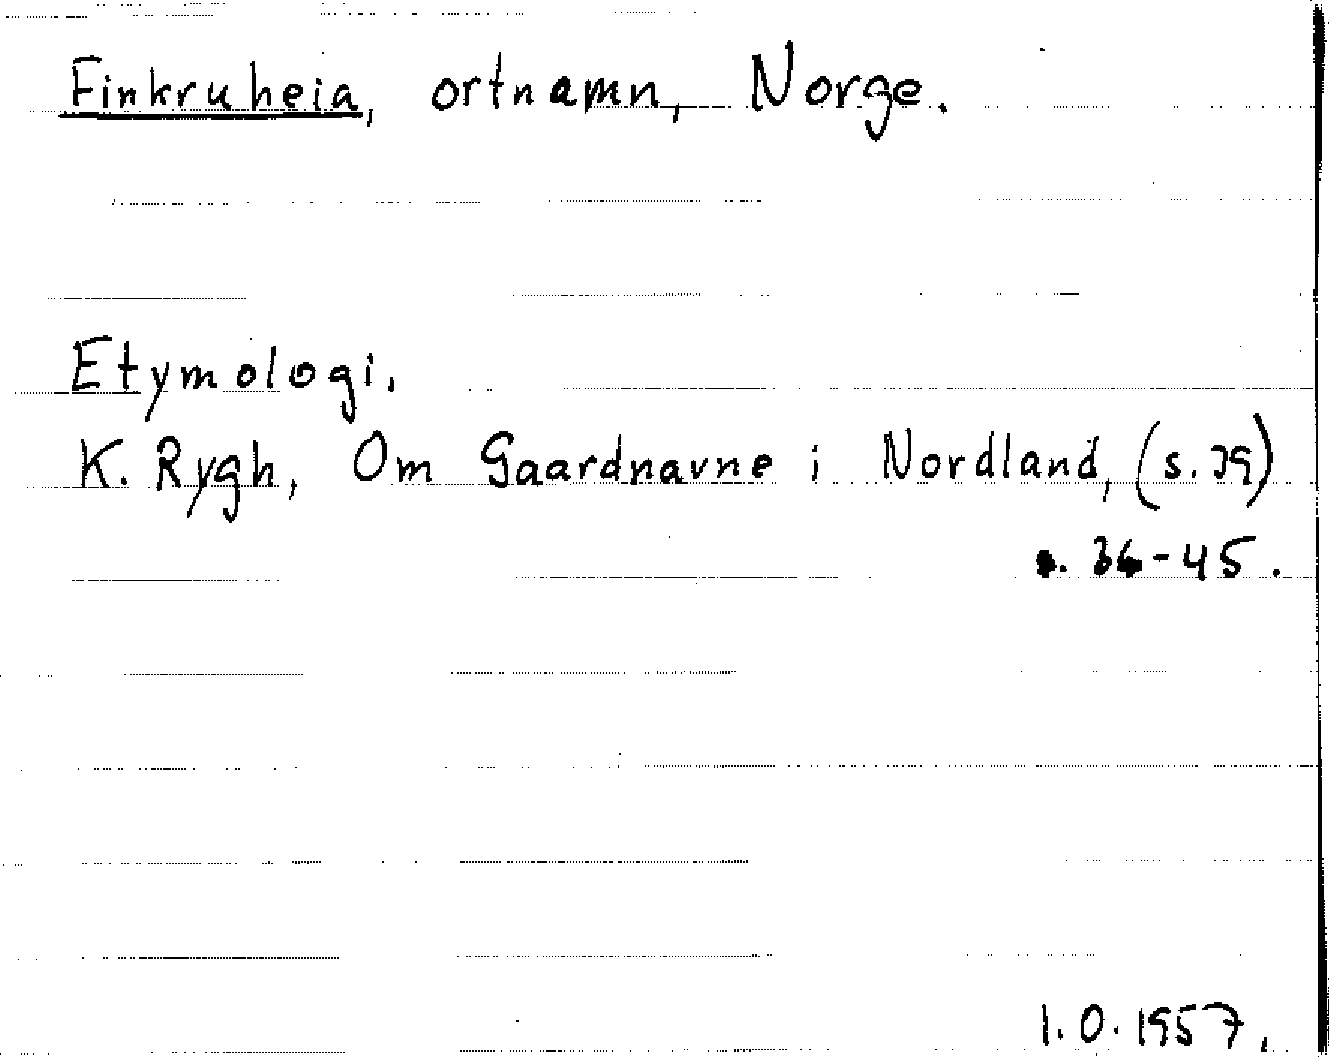 Finkruheia, ortnamn, Norge.
Etymologi.
K. Rygh, Om Gaardnavne i Nordland, (s. 39)
s. 36-45.
I.O. 1957.